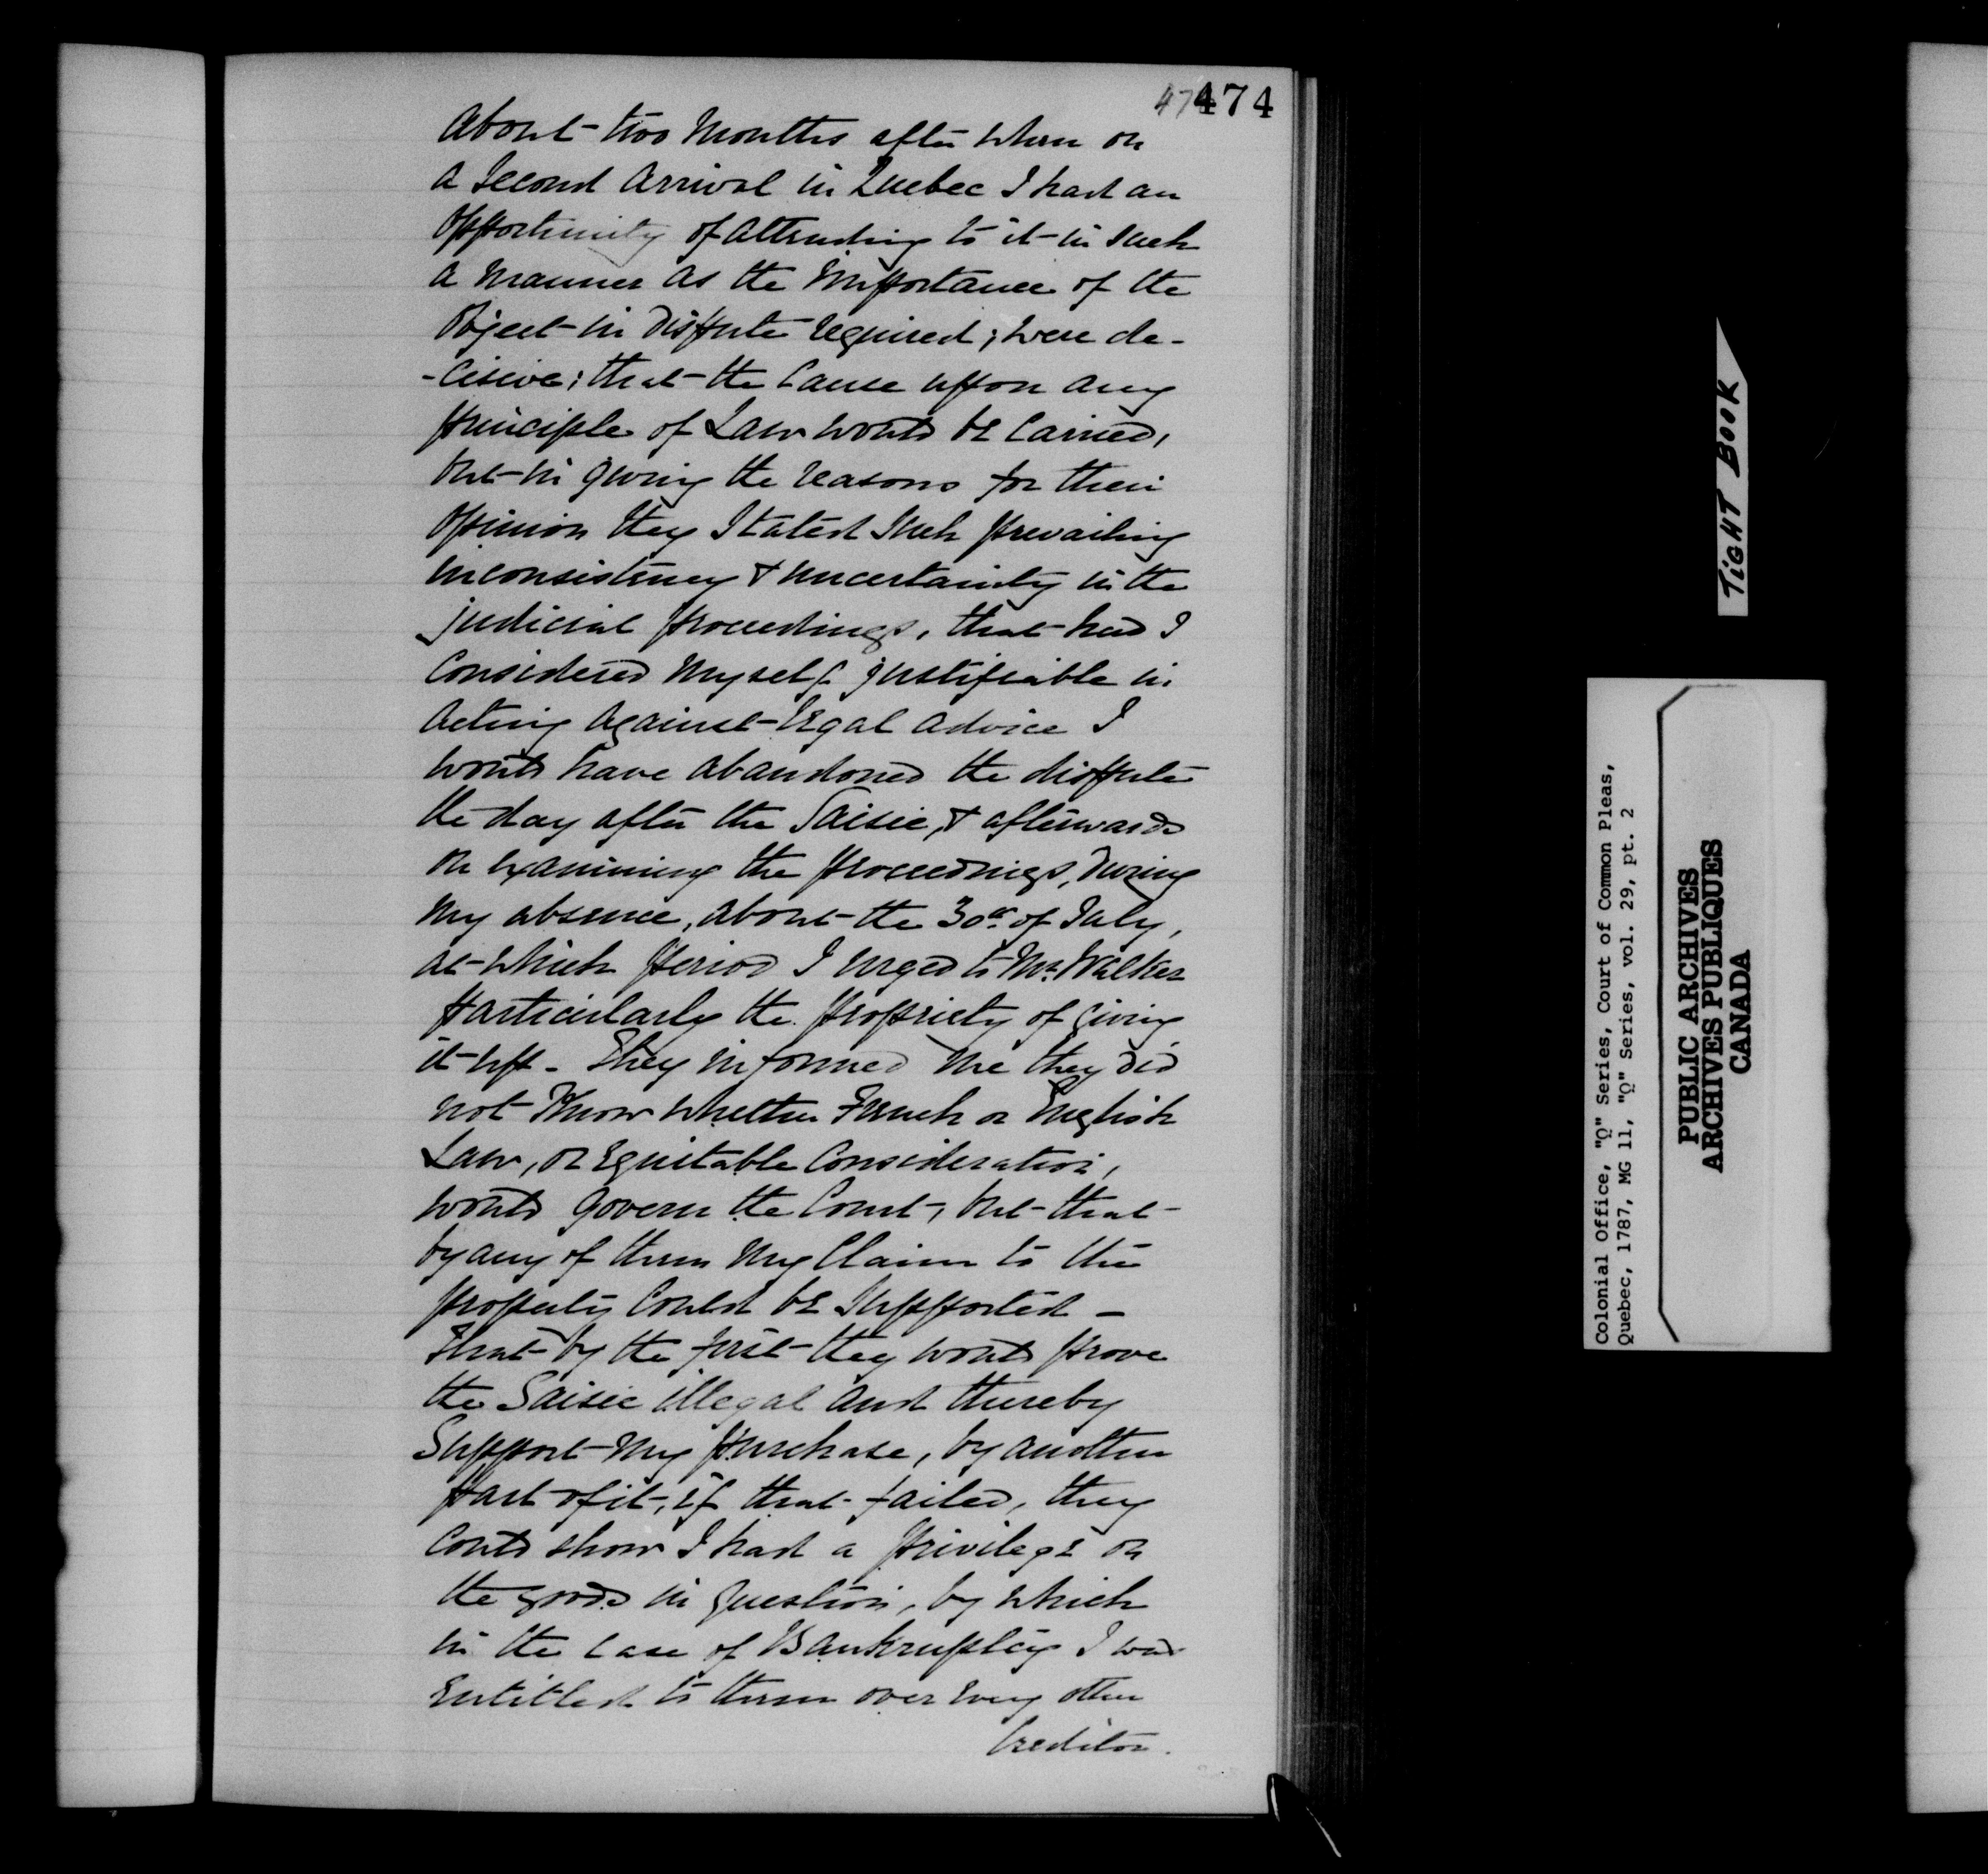 474
About two Months after when on
a Second Arrival in Quebec I had an
Opportunity of attending to it in such
a manner as the importance of the
Object in Dispute required; were de-
-cisive; that the Cause upon any
principle of Law would be Carried,
but in giving the reasons for their
Opinion they Stated Such prevailing
inconsistency & uncertainty in the
judicial proceedings, that had I
Considered myself justifiable in
acting against legal advice I
would have abandoned the dispute
the day after the Saisie, & afterwards
on examining the proceedings, During
my absence, about the 30th of July,
at which period I urged to Mr. Walker
particularly the propriety of giving
it up - They informed me they did
not Know whether French or English
Law, or Equitable Consideration,
would govern the Court, but that
by any of them my Claim to the
property Could be Supported -
that by the first they would prove
the Saisie illegal and thereby
Support my purchase, by another
part of it, if that failed, they
Could show I had a privilege on
the goods in question, by which
in the Case of Bankruptcy I was
Entitled to them over every other
Creditor.
TIGHT BOOK
Colonial Office, "Q" Series, Court of Common Pleas,
Quebec, 1787, MG 11, "Q" Series, vol. 29, pt. 2
PUBLIC ARCHIVES
ARCHIVES PUBLIQUES
CANADA